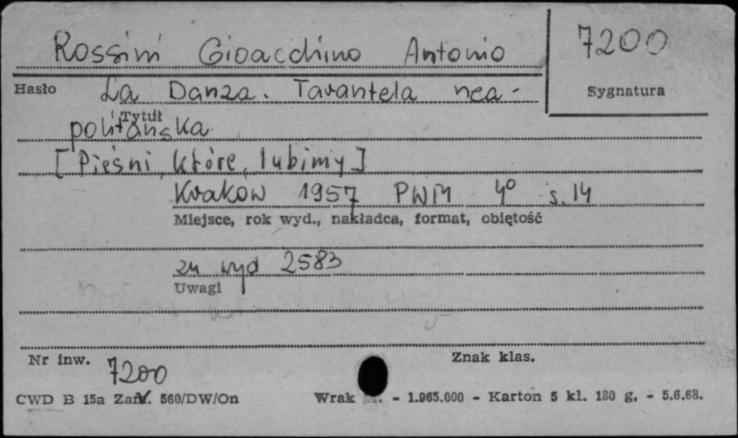 Rossini Gioacchino Antonio
7200
Hasło
Sygnatura
La Danza. Tarantela nea-
Tytuł
politańska
[Pieśni, które, lubimy]
Kraków 1957 PWM 4° s. 14
Miejsce, rok wyd., nakładca, format, obiętość
zn wyd 2583
Uwagi
Nr inw. 7200
Znak klas.
CWD B 15a Zam. 560/DW/On Wrak - 1.965.000 - Karton 5 kl. 180 g, - 5.6.68.